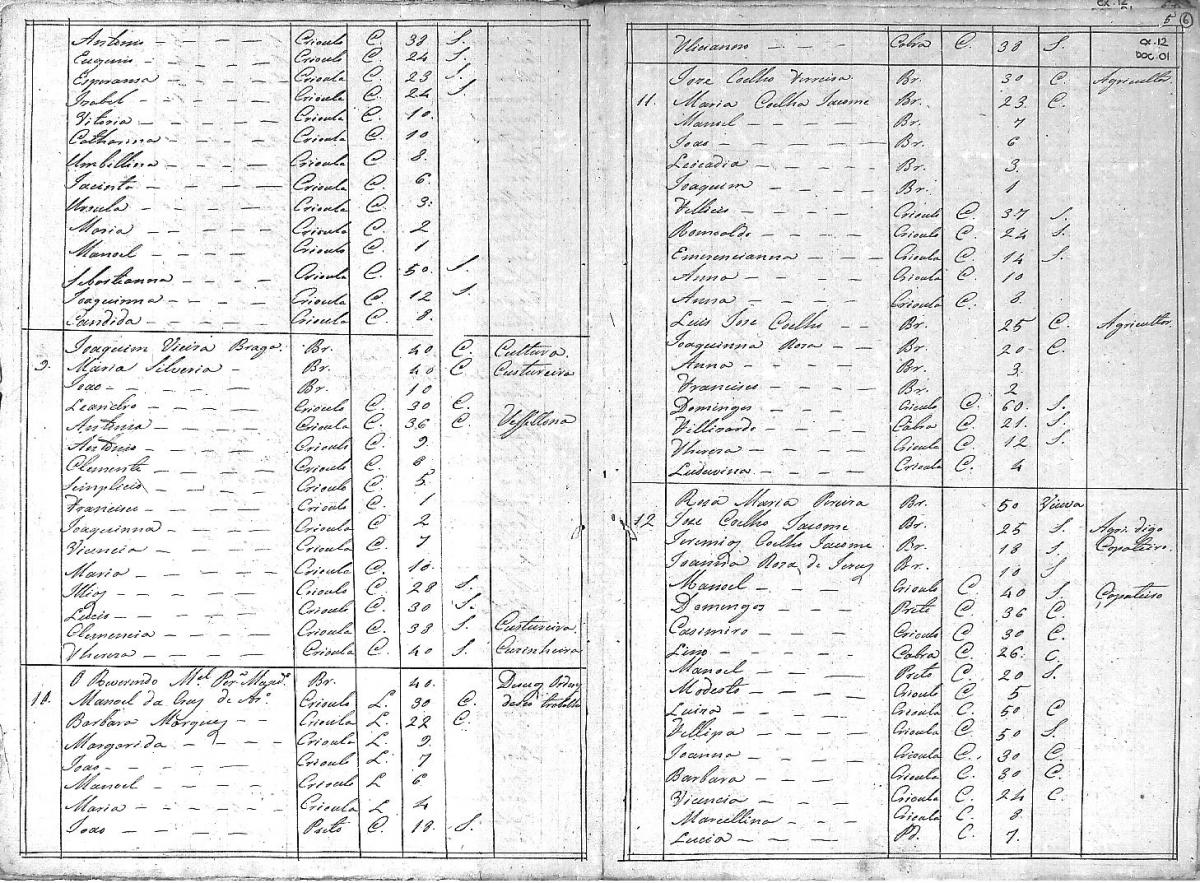 Antonio Crioulo C. 38 S.
Eugenio Crioulo C. 24 S.
Esperansa Crioula C. 23 S.
Izabel Crioula C. 24 S
Vitoria Crioula C. 10.
Catharina Crioula C. 10
Umbillina Crioula C. 8.
Jacinto Crioulo C. 6.
Ursula Crioula C. 3.
Maria Crioula C. 2
Manoel Crioulo C. 1
Sebastianna Crioula C. 50. S.
Joaquinna Crioula C. 12 S.
Candida Crioula C. 8.
Joaquim Vieira Braga. Br. 40. C. Cultura.
9. Maria Silveria Br. 40 C Custureira
Joao Br. 10
Leandro Crioulo C. 30 C.
Antonia Crioula C. 36 C.
Antonio Crioulo C. 9
Clemente Crioulo C. 6
Simplicio Crioulo C. 5
Francisco Crioulo C. 1
Joaquinna Crioula C. 2
Vicencia Crioula C. 7
Maria Crioula C. 10.
Crioulo C. 28 S.
Luis Crioulo C. 30 S.
Clemencia Crioula C. 38 S. Custureira.
Therera Crioula C. 40 S. Cusinheira
10. O Reverendo Mel. Per.ª Br. 40.
Manoel da Cruz de Crioulo L. 30 C.
Barbara Marques Crioula L. 22 C.
Margarida Crioula L. 9
Joao Crioulo L. 7
Manoel Crioulo L 6
Maria Crioula L 4
Joao Preto C. 18. S.
cx.12.
5 6
cx.12
DOC.01
Cabra C. 38 S.
Joze Coelho Ferreira. Br. 30 C. Agricultor.
11. Maria Coelha Jacome Br. 23 C.
Manoel Br. 7
Joao Br. 6
Leocadia Br. 3.
Joaquim Br. 1
Crioulo C. 37 S.
Romoaldo Crioulo C. 24 S.
Emerencianna Crioula C. 14 S.
Anna Crioula C. 10
Anna Crioula C. 8.
Luis Joze Coelho Br. 25 C. Agricultor.
Joaquinna Rosa Br. 20 C.
Anna Br. 3.
Francisco Br. 2
Domingos Crioulo C. 60. S.
Cabra C. 21. S.
Therera Crioula C. 12 S.
Luduvina Crioula C. 4
Rosa Maria Pereira Br. 50 Viuva
12 Joze Coelho Jacome Br. 25 S.
Jeremias Coelho Jacome. Br. 18 S. Çapateiro.
Joanna Rosa de Br. 10 S
Manoel Crioulo C. 40 S. Çapateiro
Domingos Preto C. 36 C.
Casimiro Crioulo C. 30 C.
Lino Cabra C. 26. C.
Manoel Preto C. 20 S.
Modesto Crioulo C. 5
Luiza Crioula C. 50 C
Fellipa Crioula C. 50 S.
Joanna Crioula C. 30 C.
Barbara Crioula C. 30 C.
Vicencia Crioula C. 24 C.
Marcellina Crioula C. 8
Lucia Pd. C. 7.